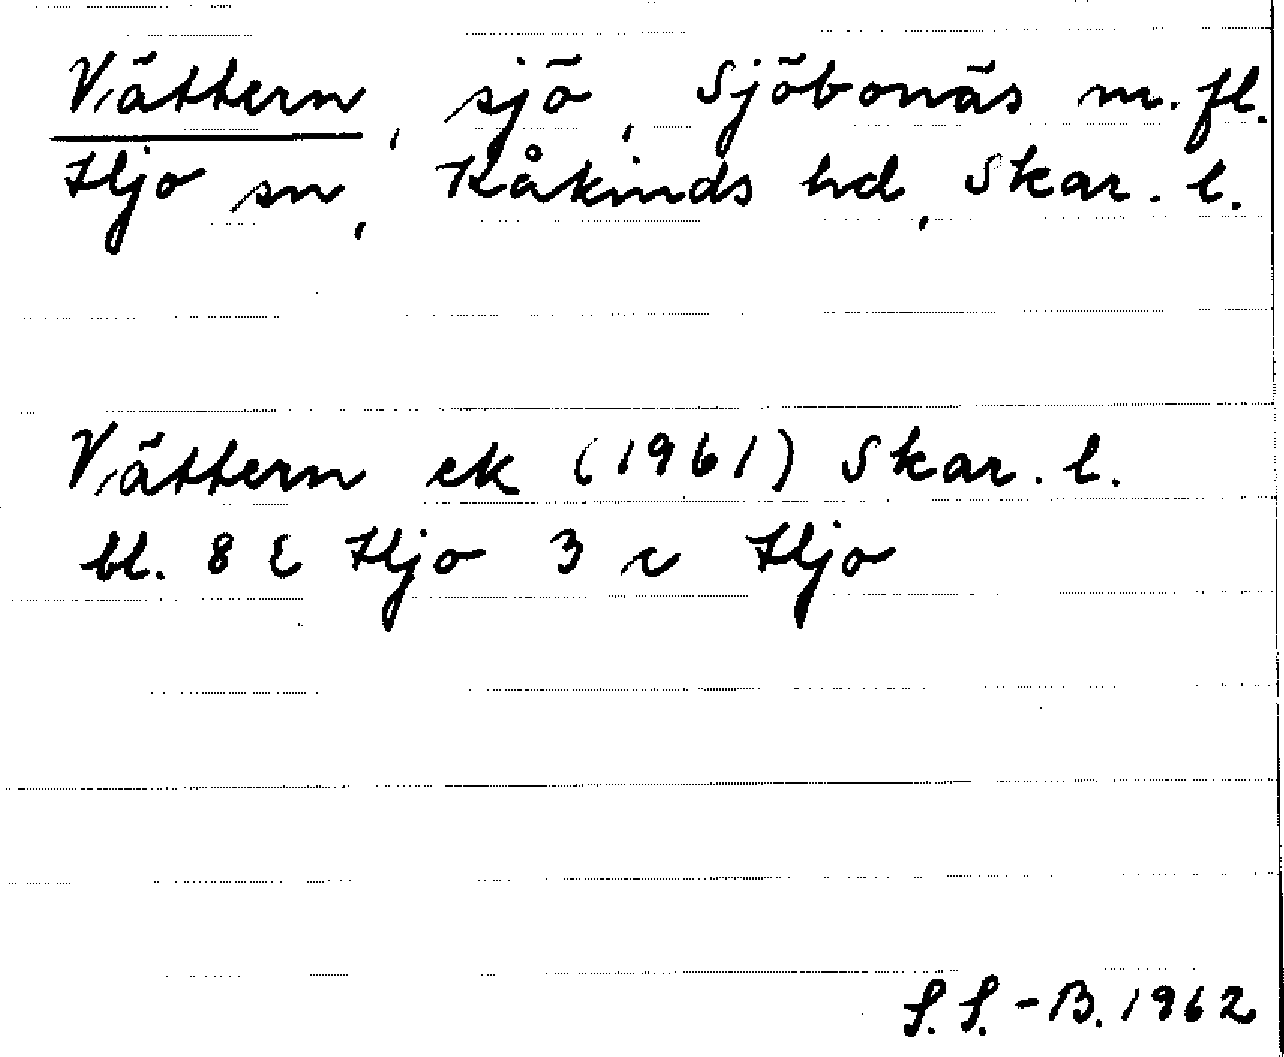 Vättern, sjö, Sjöbonäs m. fl.
Hjo sn, Kåkinds hd, Skar. l.
Vättern ek (1961) Skar. l.
bl. 8 E Hjo 3 c Hjo
S. S.-B. 1962